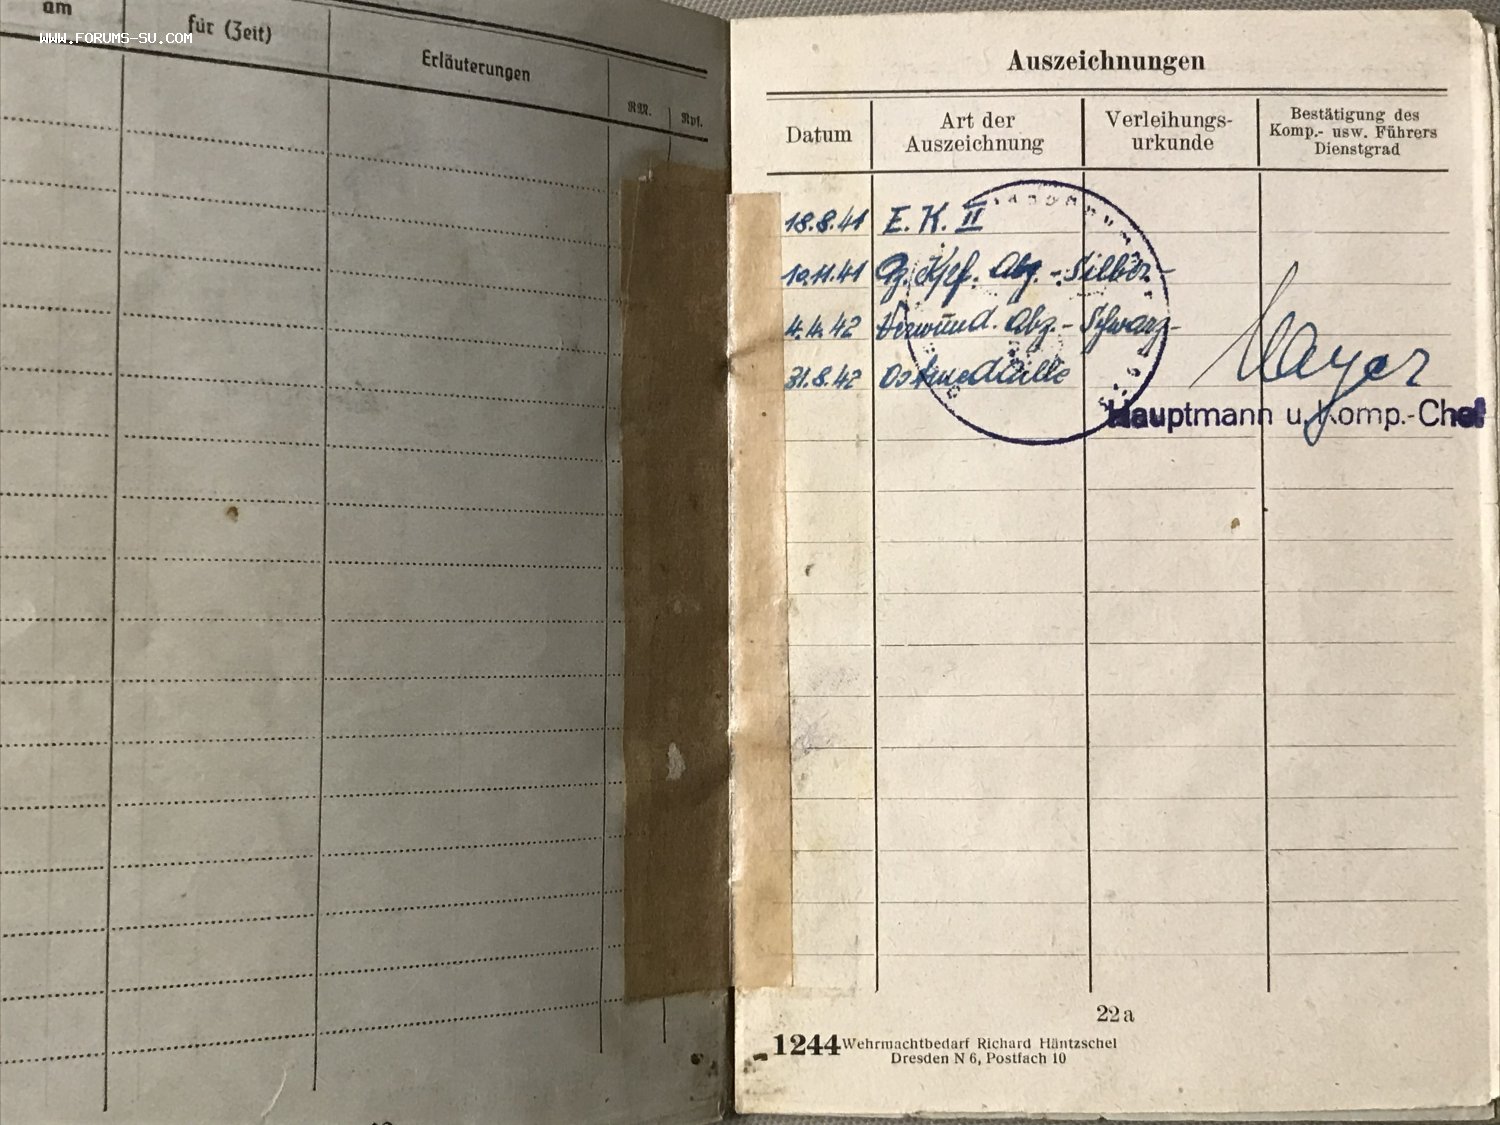 WWW.FORUMS-SU.COM
am
für (Zeit)
Erläuterungen
RM.
Rpf.
Auszeichnungen
Datum
Art der
Auszeichnung
Verleihungs-
urkunde
Bestätigung des
Komp.- usw. Führers
Dienstgrad
18.8.41 E. K. II
10.11.41 Pz. Kpf. Abz. - Silber -
4.4.42 Verwund. Abz. - Schwarz -
31.8.42 Ostmedaille
Mayer
Hauptmann u. Komp.-Chef
22a
1244 Wehrmachtbedarf Richard Häntzschel
Dresden N 6, Postfach 10